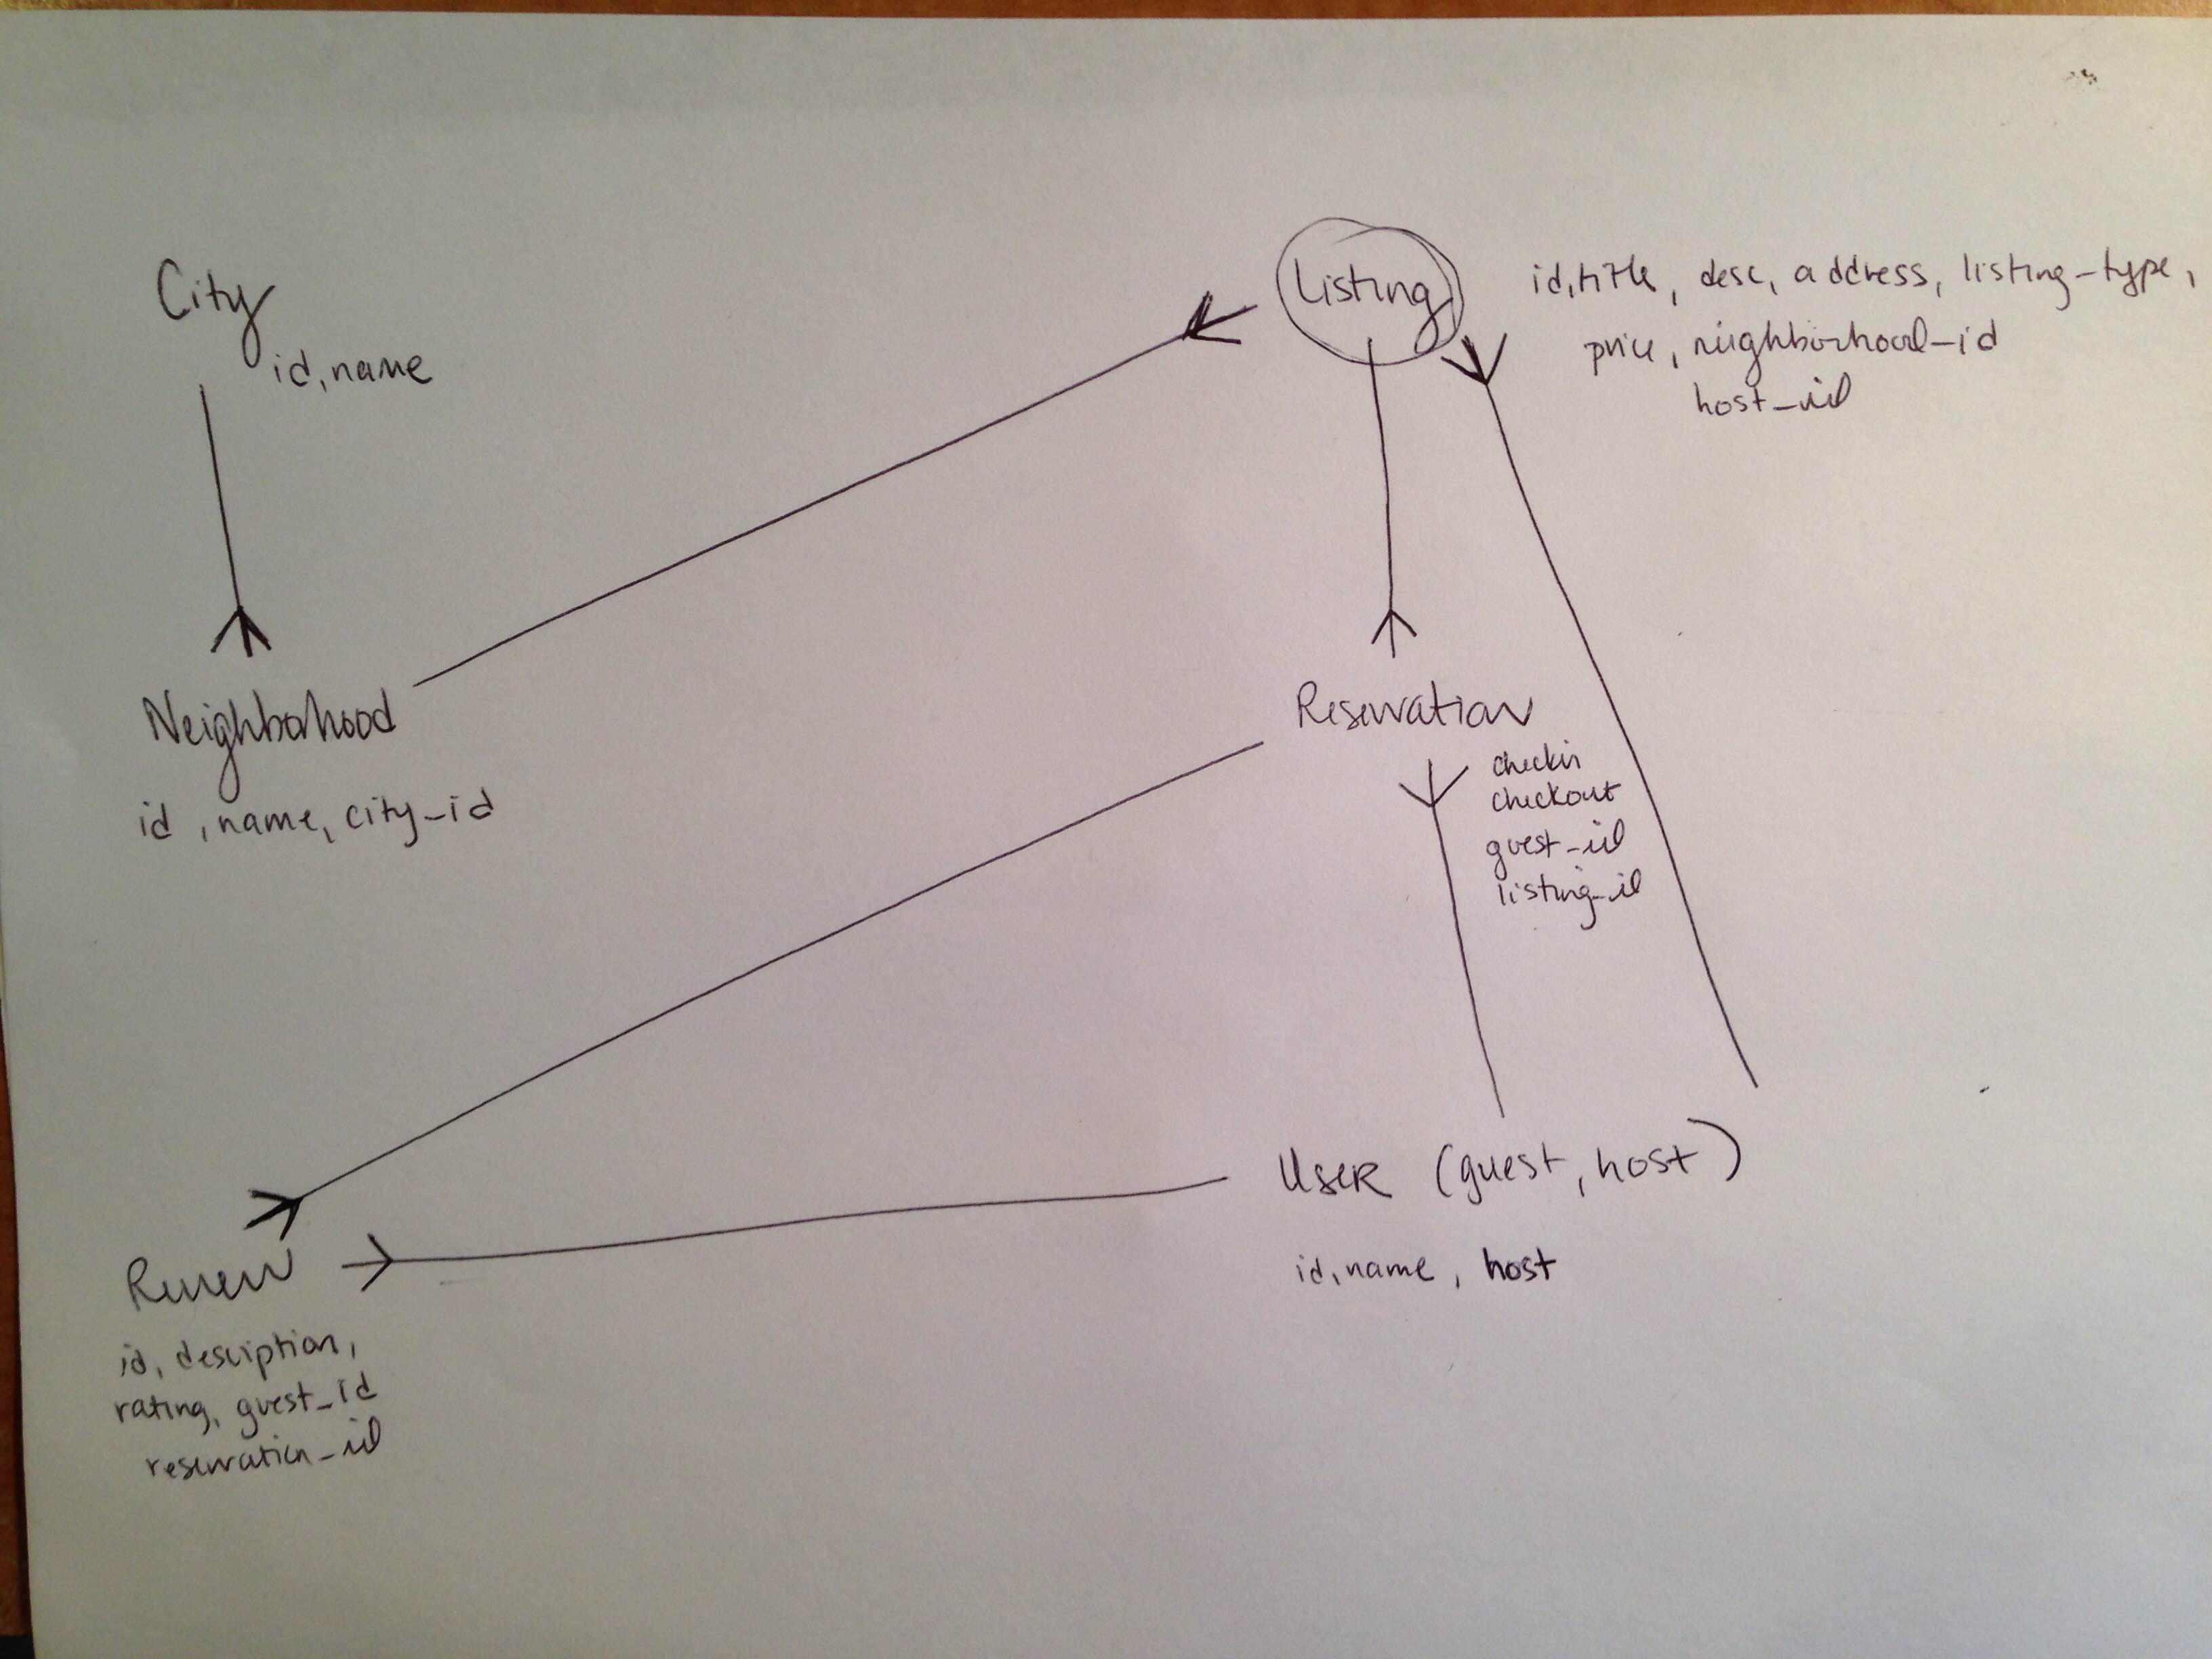 City
id, name
Listing
id, title, desc, address, listing-type,
price, neighborhood-id
host_id
Neighborhood
id, name, city_id
Reservation
checkin
checkout
guest_id
listing_id
User (guest, host)
id, name, host
Review
id, description,
rating, guest_id
reservation_id